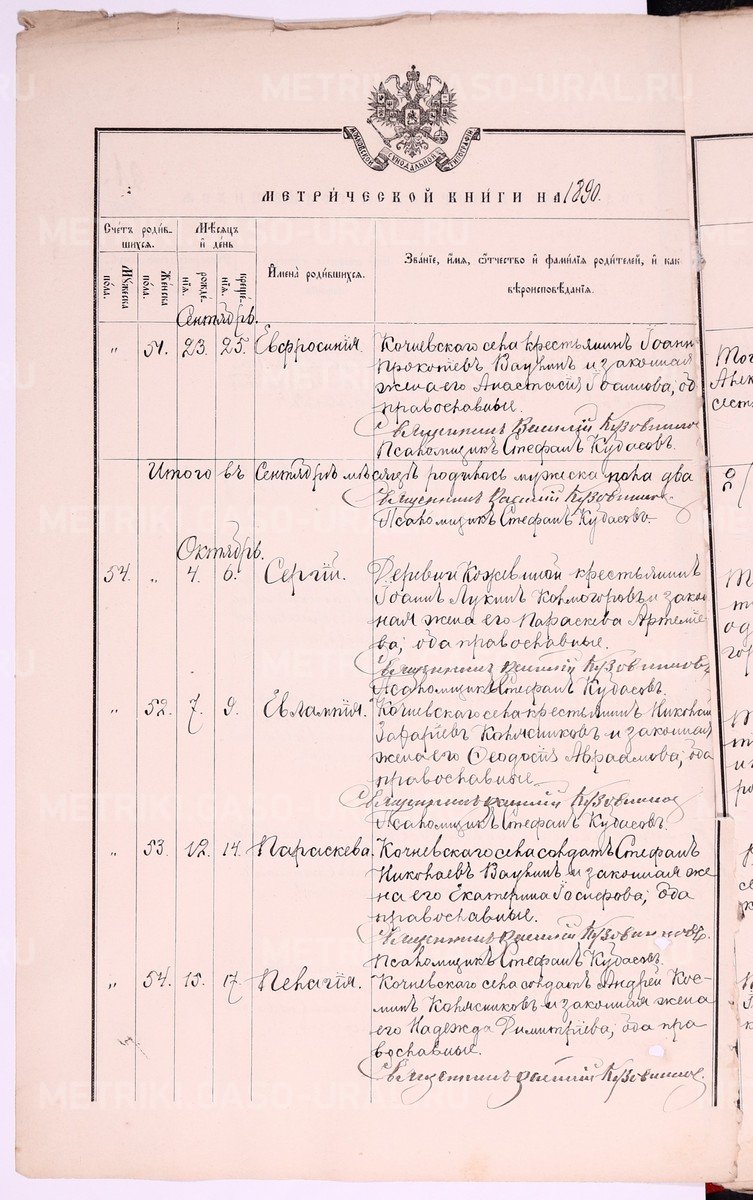 МОСКОВСКОЙ СѴНОДАЛЬНОЙ ТИПОГРАФІИ
МЕТРИ́ЧЕСКОЙ КНИ́ГИ НА 1890.
Счетъ роди́в-
шихся.
Мѣсяцъ
и҆ де́нь
И҆мена̀ роди́вшихся.
Зва́нїе, и҆́мя, ѻ҆́тчество и҆ фами́лїя роди́телей, и҆ како́
вѣроисповѣ́данїя.
Му́жеска по́ла.
Же́нска по́ла.
рожде́нїя.
креще́нїя.
Сентябрь.
" 51. 23. 25. Евфросинія. Кочневскаго села крестьянинъ Іоаннъ
Прокопіевъ Ваулинъ и законная
жена его Анастасія Іоаннова; оба
православные.
Священникъ Василій Кузовниковъ
Псаломщикъ Стефанъ Кудасовъ.
Итого въ Сентябрѣ мѣсяцѣ родилось мужеска пола два
Священникъ Василій Кузовниковъ.
Псаломщикъ Стефанъ Кудасовъ
Октябрь.
54. " 4. 6. Сергій. Деревни Кожевиной крестьянинъ
Іоаннъ Лукинъ Колмогоровъ и закон
ная жена его Параскева Артеміе
ва; оба православные.
Священникъ Василій Кузовниковъ
Псаломщикъ Стефанъ Кудасовъ.
" 52. 7. 9. Евлампія. Кочневскаго села крестьянинъ Николай
Захаріевъ Колясниковъ и законная
жена его Ѳеодосія Авраамова; оба
православные
Священникъ Василій Кузовниковъ
Псаломщикъ Стефанъ Кудасовъ.
" 53. 12. 14. Параскева. Кочневскаго села солдатъ Стефанъ
Николаевъ Ваулинъ и законная же
на его Екатерина Іосифова; оба
православные.
Священникъ Василій Кузовниковъ.
Псаломщикъ Стефанъ Кудасовъ.
" 54. 15. 17. Пелагія. Кочневскаго села солдатъ Андрей Кос-
минъ Колясниковъ и законная жена
его Надежда Димитріева; оба пра
вославные.
Священникъ Василій Кузовниковъ.
METRIKI.GASO-URAL.RU